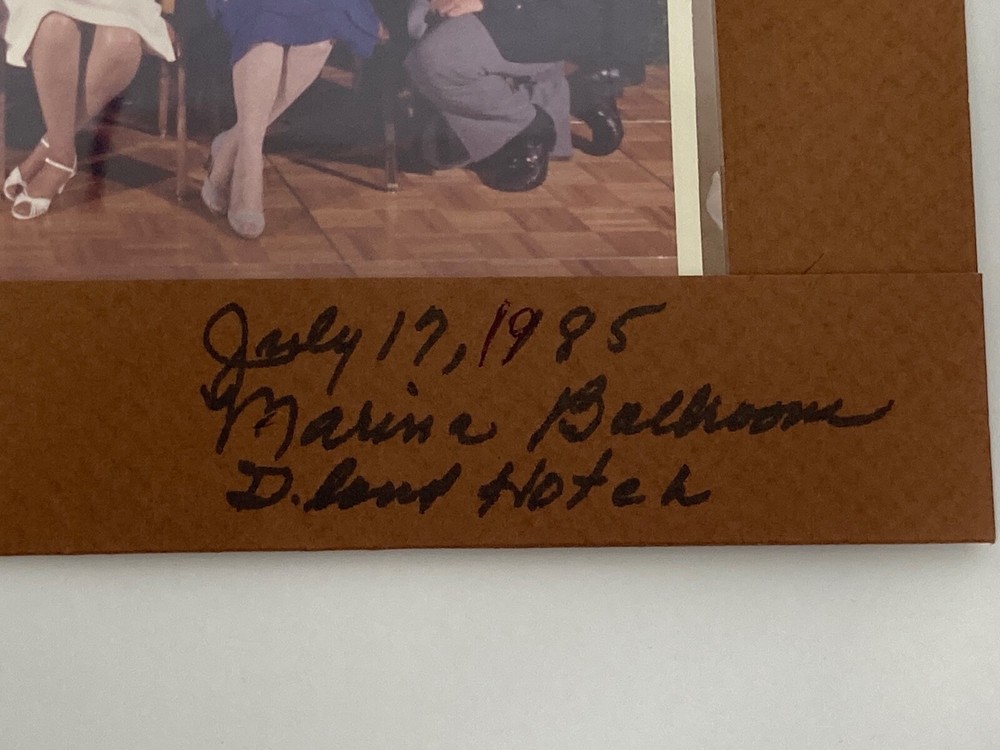 July 17, 1985
Marina Ballroom
D.land Hotel